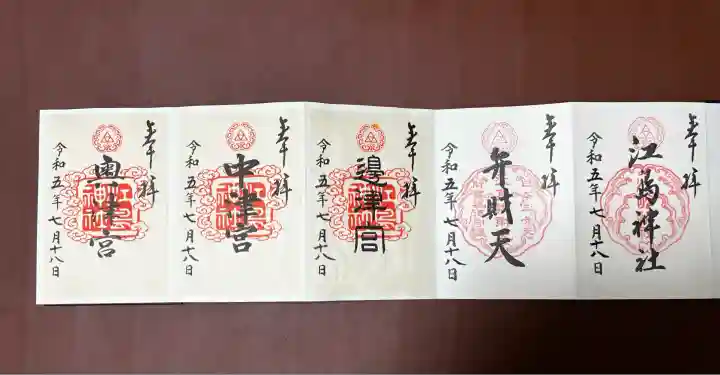 奉拝
江島神社
令和五年七月十八日
奉拝
弁財天
令和五年七月十八日
奉拝
邉津宮
令和五年七月十八日
奉拝
中津宮
令和五年七月十八日
奉拝
奥津宮
令和五年七月十八日